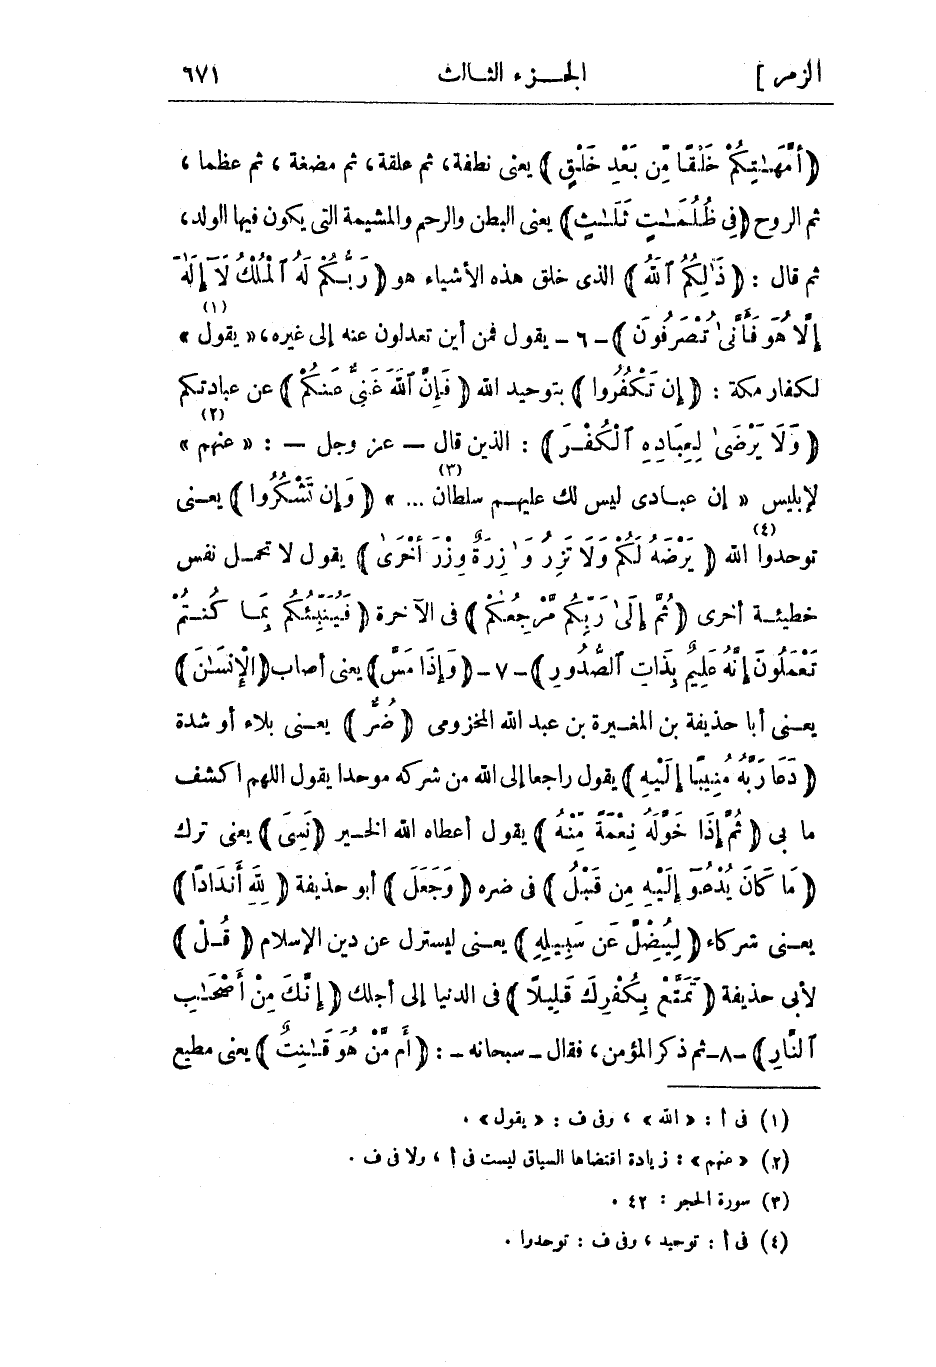 الزمر ] الجزء الثالث ٦٧١
﴿ أُمَّهَـٰتِكُمْ خَلْقًا مِّن بَعْدِ خَلْقٍ ﴾ يعنى نطفة، ثم علقة، ثم مضغة ، ثم عظما ،
ثم الروح ﴿ فِى ظُلُمَـٰتٍ ثَلَـٰثٍ ﴾ يعنى البطن والرحم والمشيمة التى يكون فيها الولد،
ثم قال : ﴿ ذَٰلِكُمُ ٱللَّهُ ﴾ الذى خلق هذه الأشياء هو ﴿ رَبُّكُمْ لَهُ ٱلْمُلْكُ لَآ إِلَـٰهَ
إِلَّا هُوَ فَأَنَّىٰ تُصْرَفُونَ ﴾ ـ ٦ ـ يقول فمن أين تعدلون عنه إلى غيره، « يقول » (١)
لكفار مكة : ﴿ إِن تَكْفُرُوا ﴾ بتوحيد الله ﴿ فَإِنَّ ٱللَّهَ غَنِىٌّ عَنكُمْ ﴾ عن عبادتكم
﴿ وَلَا يَرْضَىٰ لِعِبَادِهِ ٱلْكُفْرَ ﴾ : الذين قال — عز وجل — : « عنهم » (٢)
لإبليس « إن عبادى ليس لك عليهم سلطان ... » (٣) ﴿ وَإِن تَشْكُرُوا ﴾ يعنى
توحدوا (٤) الله ﴿ يَرْضَهُ لَكُمْ وَلَا تَزِرُ وَازِرَةٌ وِزْرَ أُخْرَىٰ ﴾ يقول لا تحمل نفس
خطيئة أخرى ﴿ ثُمَّ إِلَىٰ رَبِّكُم مَّرْجِعُكُمْ ﴾ فى الآخرة ﴿ فَيُنَبِّئُكُم بِمَا كُنتُمْ
تَعْمَلُونَ إِنَّهُ عَلِيمٌ بِذَاتِ ٱلصُّدُورِ ﴾ ـ ٧ ـ ﴿ وَإِذَا مَسَّ ﴾ يعنى أصاب ﴿ ٱلْإِنسَـٰنَ ﴾
يعنى أبا حذيفة بن المغيرة بن عبد الله المخزومى ﴿ ضُرٌّ ﴾ يعنى بلاء أو شدة
﴿ دَعَا رَبَّهُ مُنِيبًا إِلَيْهِ ﴾ يقول راجعا إلى الله من شركه موحدا يقول اللهم اكشف
ما بى ﴿ ثُمَّ إِذَا خَوَّلَهُ نِعْمَةً مِّنْهُ ﴾ يقول أعطاه الله الخير ﴿ نَسِىَ ﴾ يعنى ترك
﴿ مَا كَانَ يَدْعُوٓ إِلَيْهِ مِن قَبْلُ ﴾ فى ضره ﴿ وَجَعَلَ ﴾ أبو حذيفة ﴿ لِلَّهِ أَندَادًا ﴾
يعنى شركاء ﴿ لِيُضِلَّ عَن سَبِيلِهِ ﴾ يعنى ليستزل عن دين الإسلام ﴿ قُلْ ﴾
لأبى حذيفة ﴿ تَمَتَّعْ بِكُفْرِكَ قَلِيلًا ﴾ فى الدنيا إلى أجلك ﴿ إِنَّكَ مِنْ أَصْحَـٰبِ
ٱلنَّارِ ﴾ ـ ٨ ـ ثم ذكر المؤمن، فقال ـ سبحانه ـ : ﴿ أَم مَّنْ هُوَ قَـٰنِتٌ ﴾ يعنى مطيع
(١) فى أ : « الله » ، وفى ف : « يقول » .
(٢) « عنهم » : زيادة اقتضاها السياق ليست فى أ ، ولا فى ف .
(٣) سورة الحجر : ٤٢ .
(٤) فى أ : توحيد ، وفى ف : توحدوا .